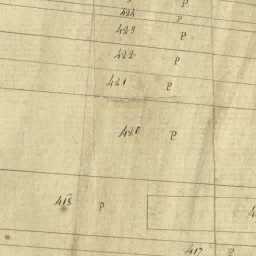 424 P
423 P
422 P
421 P
420 P
418 P
417 P